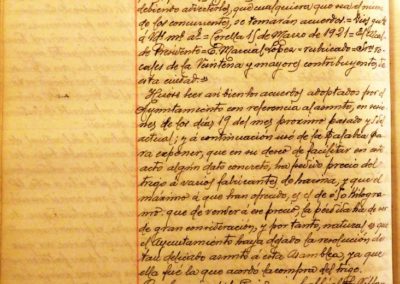 debiendo advertirles, que cualquiera que sea el núm.
de los concurrentes, se tomarán acuerdos = Dios gu.e
á V. m.s a.s = Corella 15 de Marzo de 1921 = El Alcal
de Presidente = Marcial López = rubricado = Sres Vo
cales de la Veintena y mayores contribuyentes, de
esta ciudad.
leer asi bien los acuerdos adoptados por el
Ayuntamiento con referencia al asunto, en sesio
nes de los días 19 del mes próximo pasado y
actual; y á continuación usó de la palabra pa
ra exponer, que en su deseo de facilitar en este
acto algún dato concreto, ha pedido precio del
trigo á varios fabricantes de harina, y que el
máximo á que han ofrecido, es el de 0'50 kilogra
mo: que de vender á ese precio, la pérdida ha de ser
de gran consideración, y por tanto, natural es que
el Ayuntamiento haya dejado la resolución de
tan delicado asunto á esta Asamblea, ya que
ella fué la que acordó la compra del trigo.